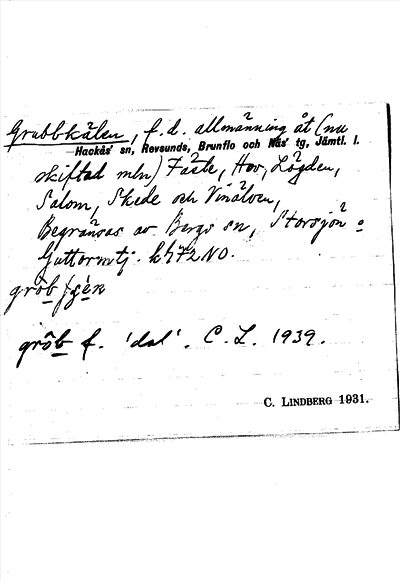 Grubbkälen, f.d. allmänning åt (nu
Hackås' sn, Revsunds, Brunflo och Näs' tg, Jämtl. l.
skiftad mln) Fäste, Hov, Lögden,
Salom, Skede och Vinälven,
Begränsas av Bergs sn, Storsjön o
Guttormtj. kh72 NO.
grôb
grôb f. 'dal'. C. L. 1939.
C. LINDBERG 1931.